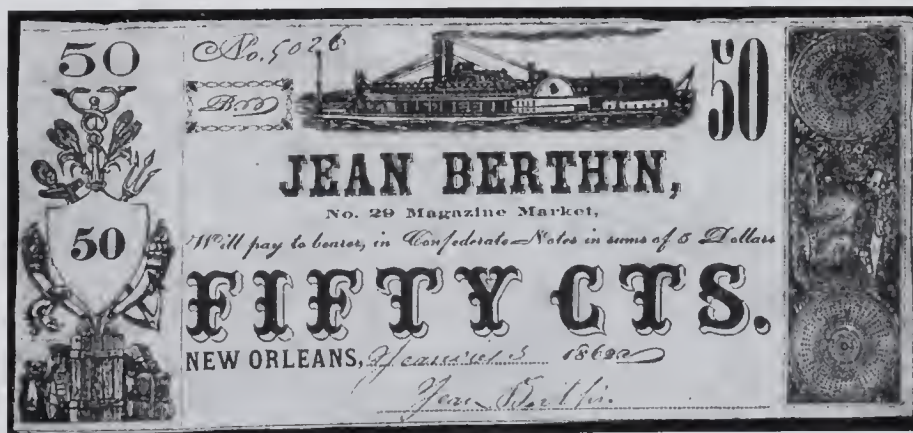 50
No. 5026
50
JEAN BERTHIN,
No. 29 Magazine Market,
Will pay to bearer, in Confederate Notes in sums of 5 Dollars
50
FIFTY CTS.
NEW ORLEANS, 1862
Jean Berthin